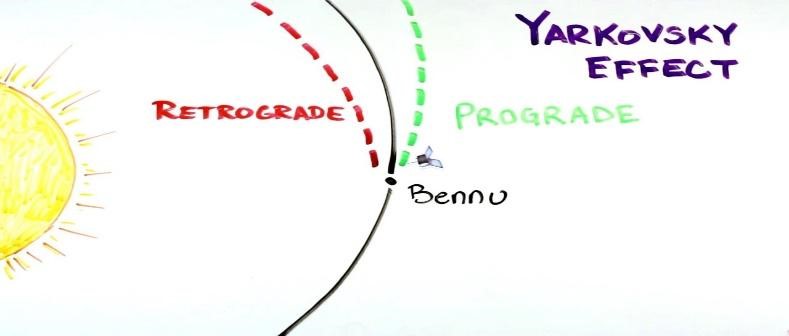 YARKOVSKY
EFFECT
RETROGRADE
PROGRADE
Bennu